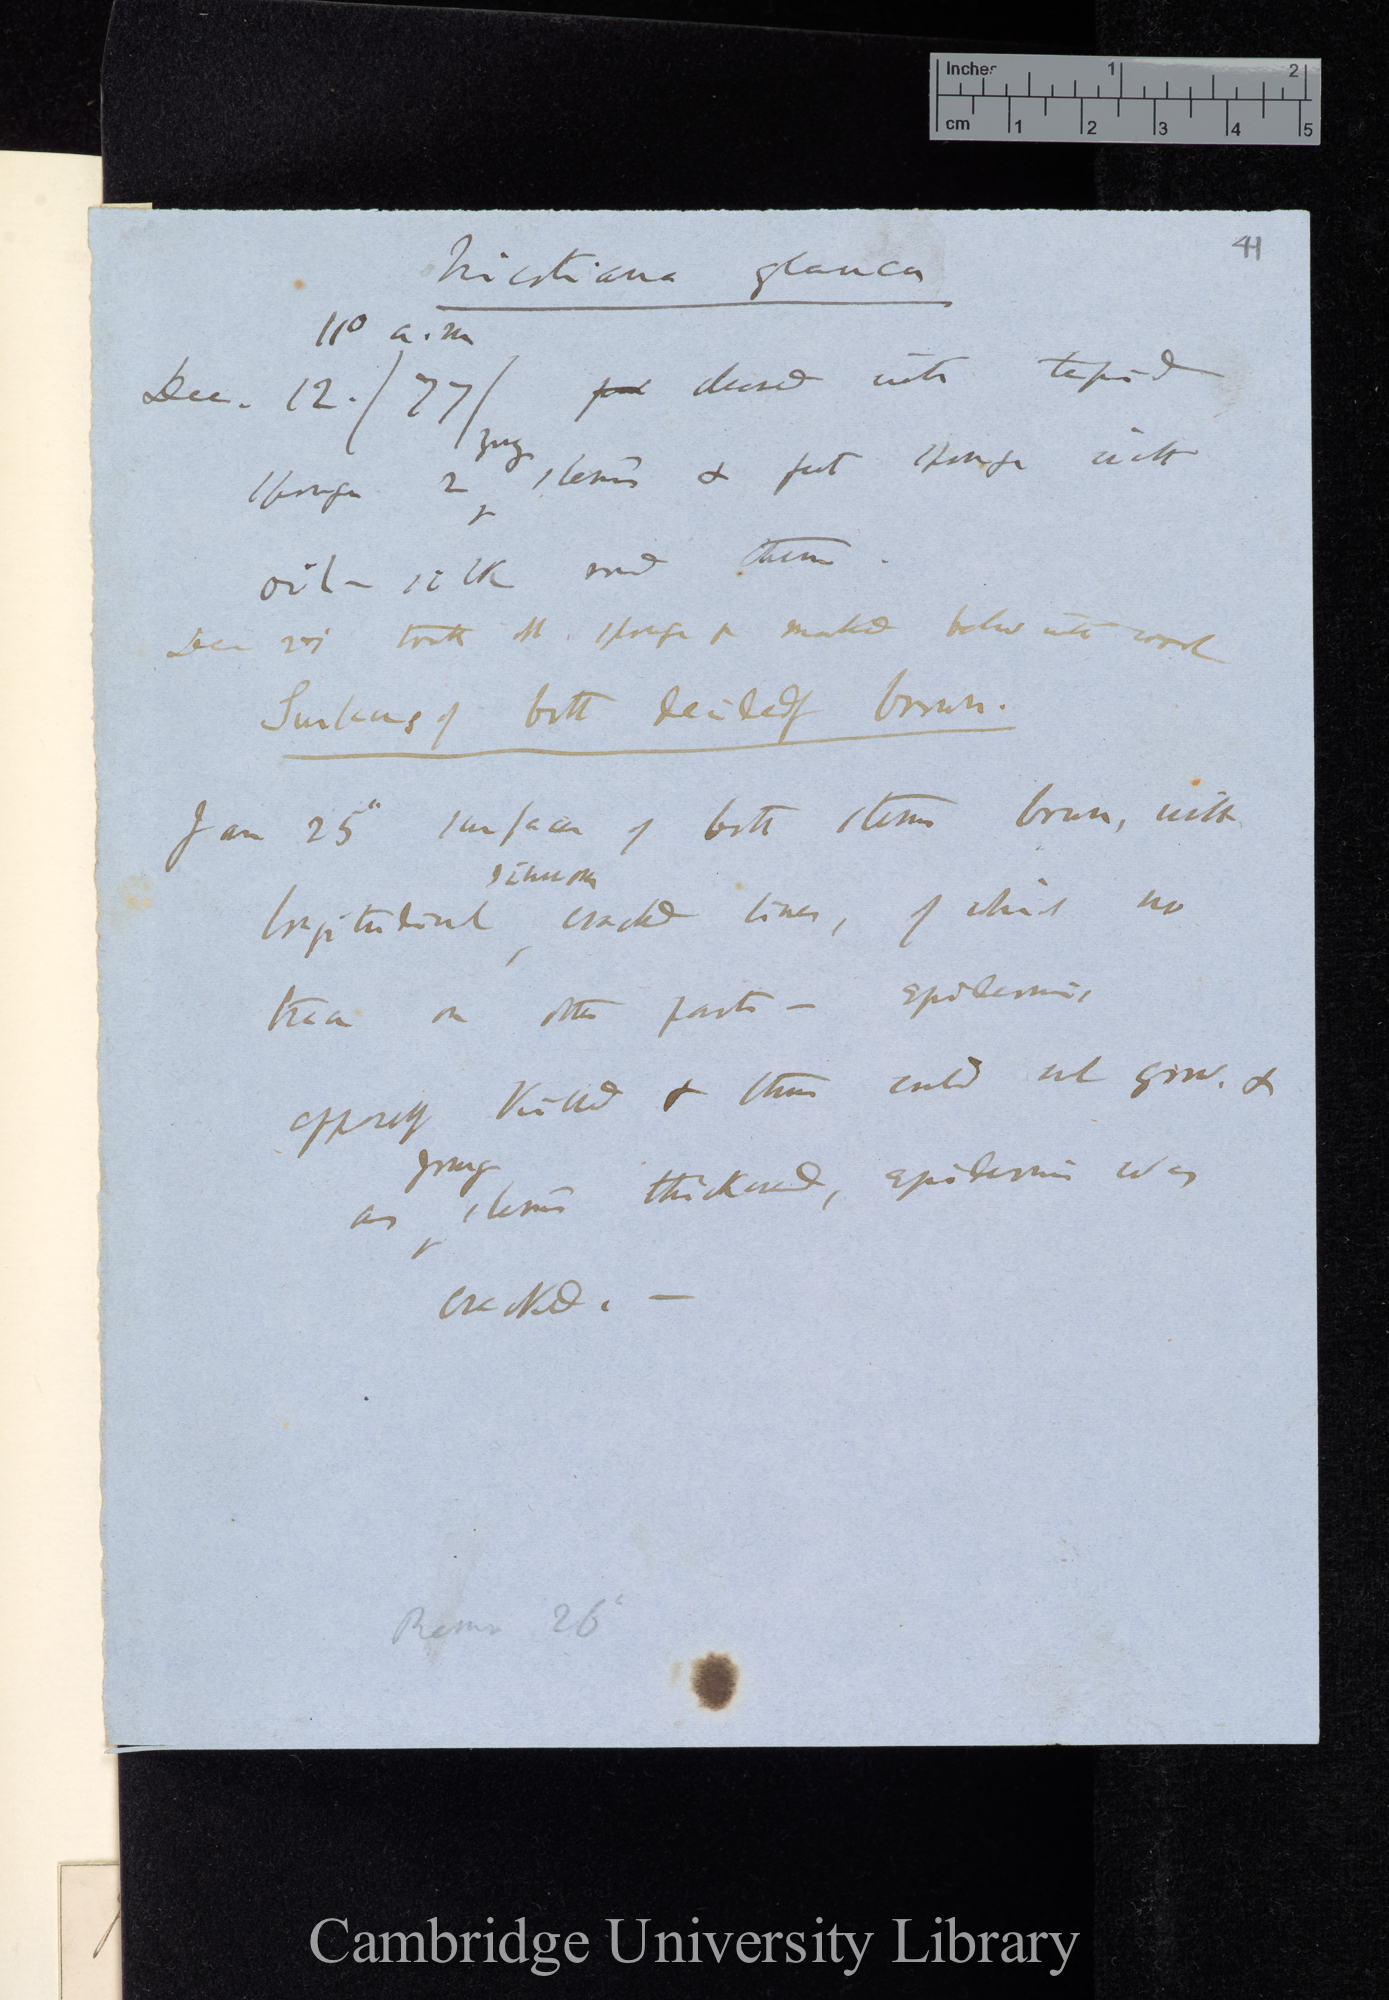 Inches 1 2
cm 1 2 3 4 5
41
Nicotiana glauca
11° a.m
Dec. 12. / 77 / put cleaned with tepid
sponge 2 young stems & put sponge with
oil-silk round them.
Dec took off sponge & marked below with wool
Surfaces of both decidedly brown.
Jan 25th surface of both stems brown, with
longitudinal sinuous cracked lines, of which no
trace on other parts — epidermis
apparently killed & thus could not grow. &
as young stems thickened, epidermis was
cracked. —
26th
Cambridge University Library